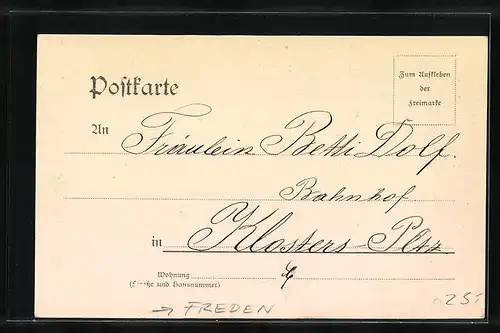 Postkarte
Zum Aufkleben
der
Freimarke
An Fräulein Betti Dolf.
Bahnhof
in Klosters-Pltz
Wohnung
(Straße und Hausnummer)
→ FREDEN
25.-